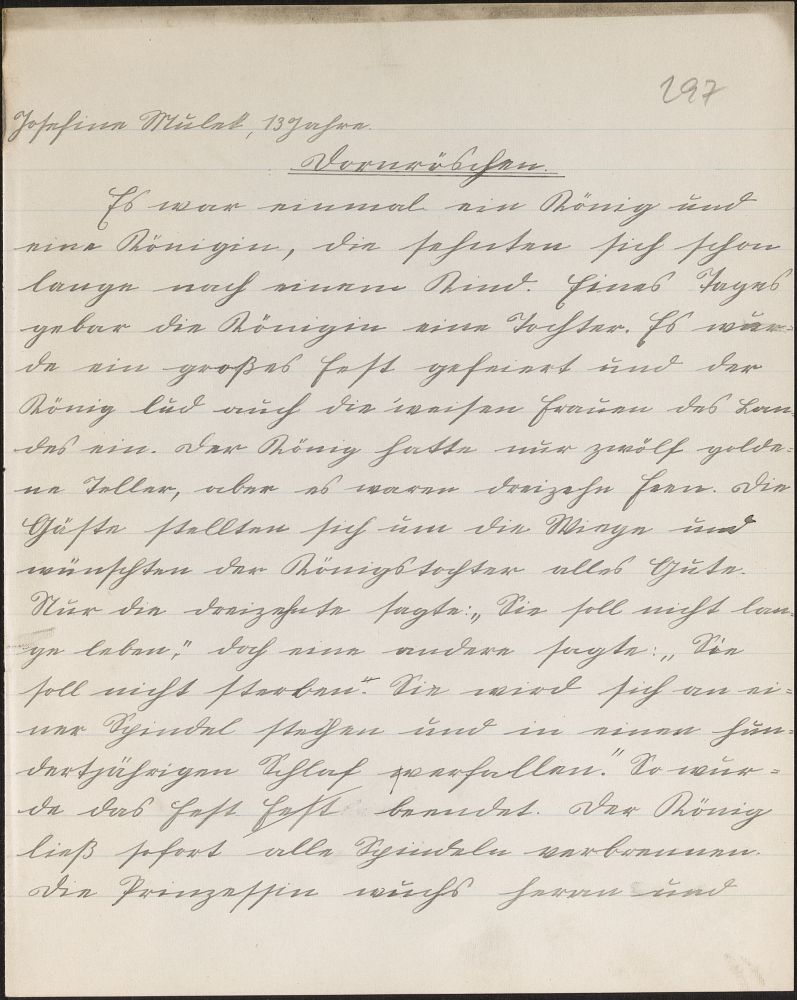 297
Josefine Mulek, 13 Jahre.
Dornröschen.
Es war einmal ein König und
eine Königin, die sehnten sich schon
lange nach einem Kind. Eines Tages
gebar die Königin eine Tochter. Es wur=
de ein großes Fest gefeiert und der
König lud auch die weisen Frauen des Lan=
des ein. Der König hatte nur zwölf golde=
ne Teller, aber es waren dreizehn Feen. Die
Gäste stellten sich um die Wiege und
wünschten der Königstochter alles Gute.
Nur die dreizehnte sagte: „Sie soll nicht lan=
ge leben“, doch eine andere sagte: „Sie
soll nicht sterben“. Sie wird sich an ei=
ner Spindel stechen und in einen hun=
dertjährigen Schlaf verfallen.“ So wur=
de das Fest Fest beendet. Der König
ließ sofort alle Spindeln verbrennen.
Die Prinzessin wuchs heran und